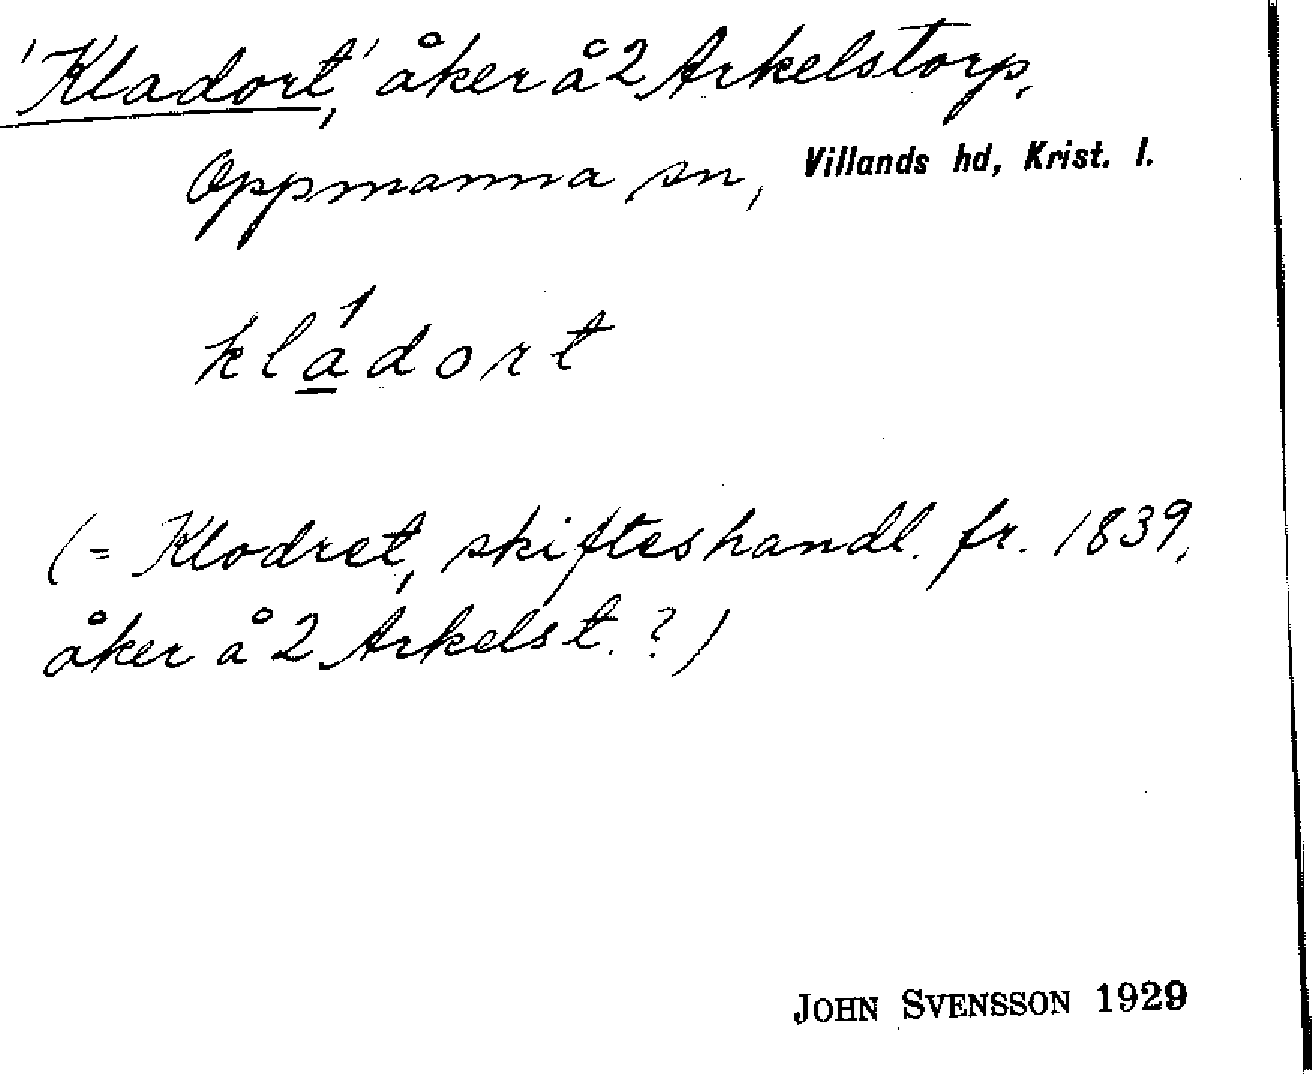 'Kladort,' åker å 2 Arkelstorp,
Oppmanna sn, Villands hd, Krist. l.
klá̲dort
(= Klodret, skifteshandl. fr. 1839,
åker å 2 Arkelst. ?)
JOHN SVENSSON 1929